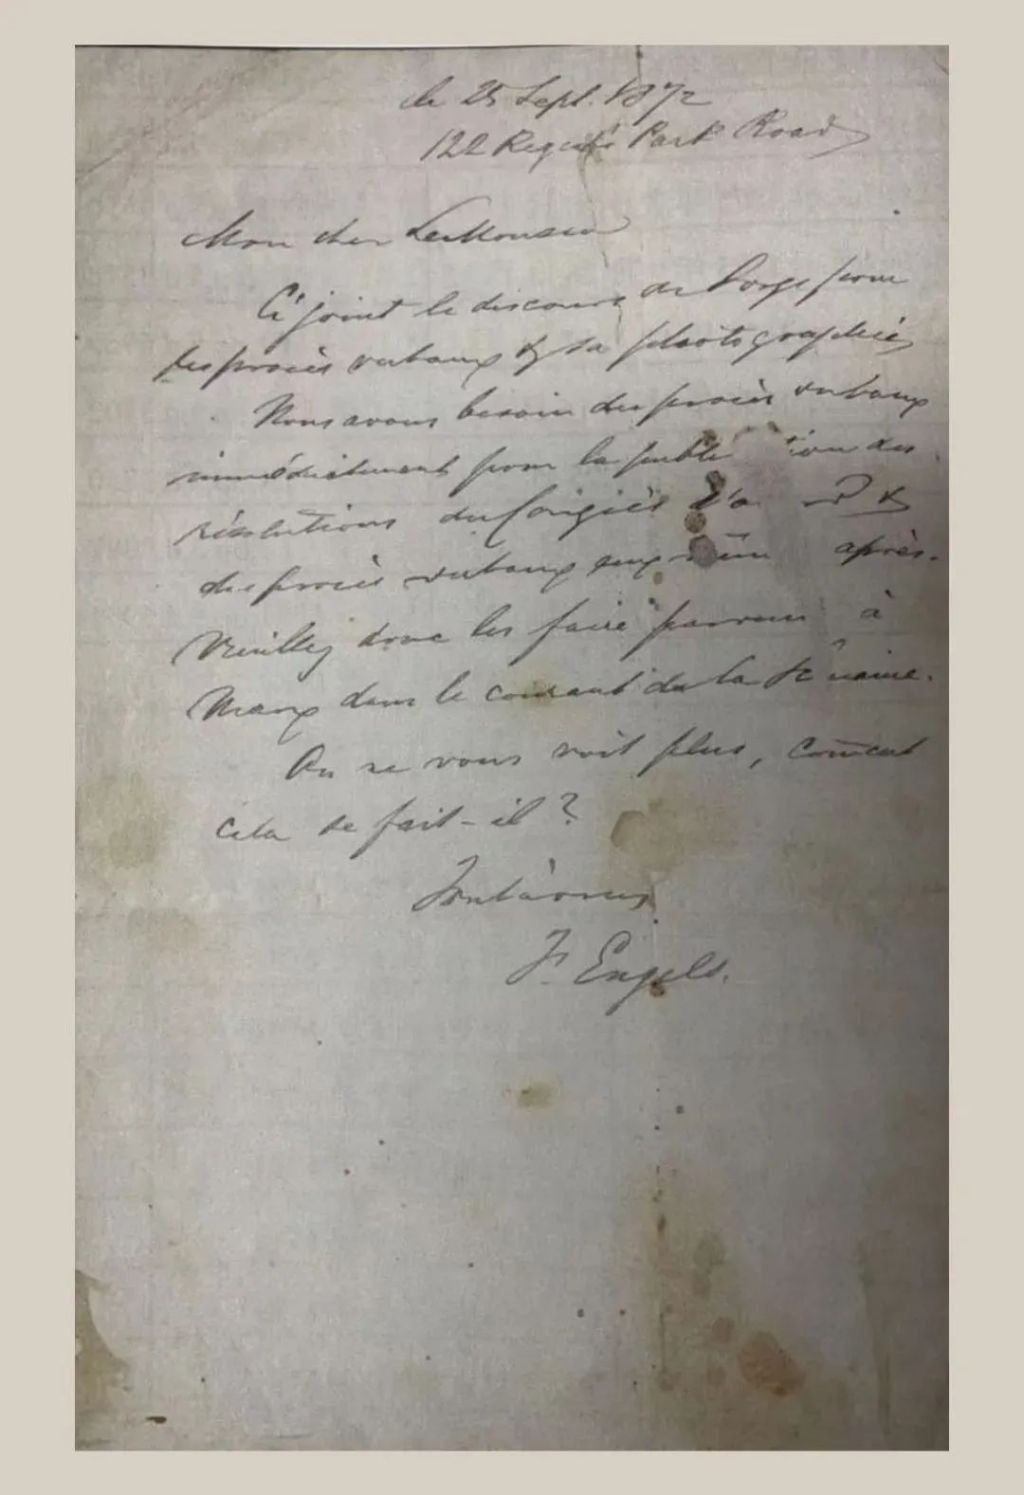 le 25 Sept. 1872
122 Regents Park Road
Mon cher LeMoussu
Ci joint le discours de Sorge pour
les procès verbaux & sa photographie,
Nous avons besoin des procès verbaux
immédiatement pour la publi tion des
résolutions du Congrès
des procès verbaux après.
Veuillez donc les faire parvenir à
Marx dans le courant de la se maine.
On ne vous voit plus, comment
cela se fait-il?
Tout à vous,
F. Engels.